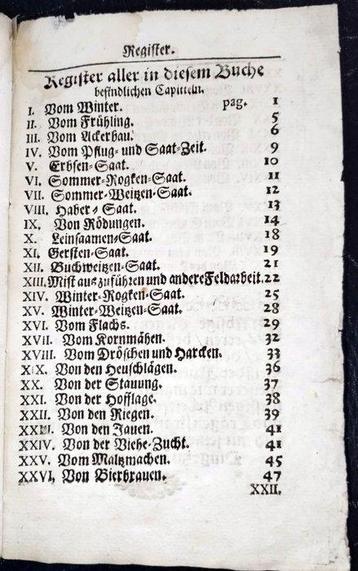 Register.
Register aller in diesem Buche
befindlichen Capitteln.
I. Vom Winter. pag. 1
II. Vom Frühling. 5
III. Vom Ackerbau. 6
IV. Vom Pflug- und Saat-Zeit. 9
V. Erbsen-Saat. 10
VI. Sommer-Rogken-Saat. 11
VII. Sommer-Weitzen-Saat. 12
VIII. Haber-Saat. 13
IX. Von Rödungen. 14
X. Leinsaamen-Saat. 18
XI. Gersten-Saat. 19
XII. Buchweitzen-Saat. 21
XIII. Mist auszuführen und andere Feldarbeit. 22
XIV. Winter-Rogken-Saat. 25
XV. Winter-Weitzen-Saat. 28
XVI. Vom Flachs. 29
XVII. Vom Kornmähen. 32
XVIII. Vom Dröschen und Harcken. 33
XIX. Von den Heuschlägen. 36
XX. Von der Stauung. 37
XXI. Von der Hofflage. 38
XXII. Von den Riegen. 39
XXIII. Von den Jauen. 41
XXIV. Von der Viehe-Zucht. 41
XXV. Vom Maltzmachen. 45
XXVI, Von Bierbrauen. 47
XXII.